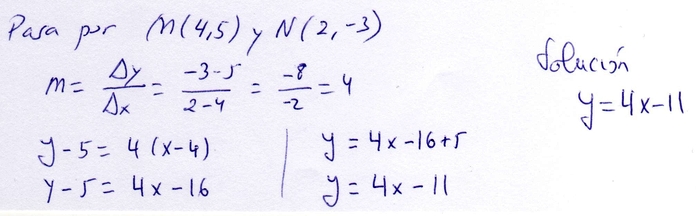 Pasa por M(4,5) y N(2,-3)
m = Δy/Δx = -3-5/2-4 = -8/-2 = 4
y-5 = 4(x-4)
y-5 = 4x-16
y = 4x-16+5
y = 4x-11
Solución
y = 4x-11